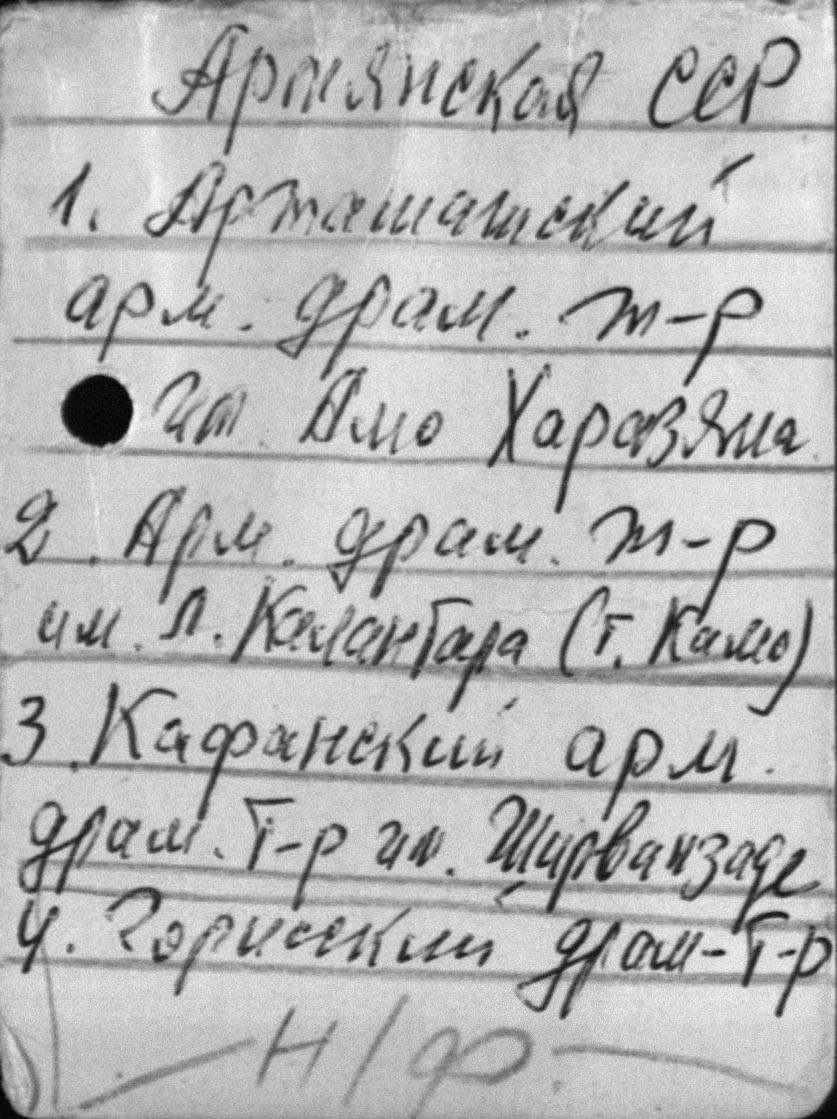 Армянская ССР
1. Арташатский
арм. драм. т-р
им. Амо Харазяна
2. Арм. драм. т-р
им. Л. Калантара (г. Камо)
3. Кафанский арм.
драм. т-р им. Ширванзаде
4. Горисский драм-т-р
Н/Ф